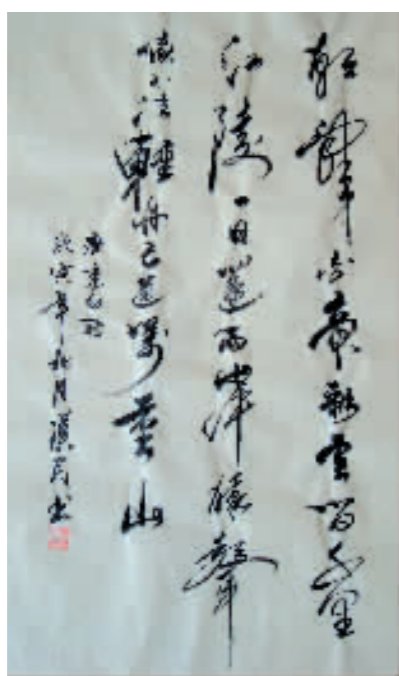 朝辭白帝彩雲間千里
江陵一日還兩岸猿聲
啼不住輕舟已過萬重山
唐李白詩
寅年秋月漢民书